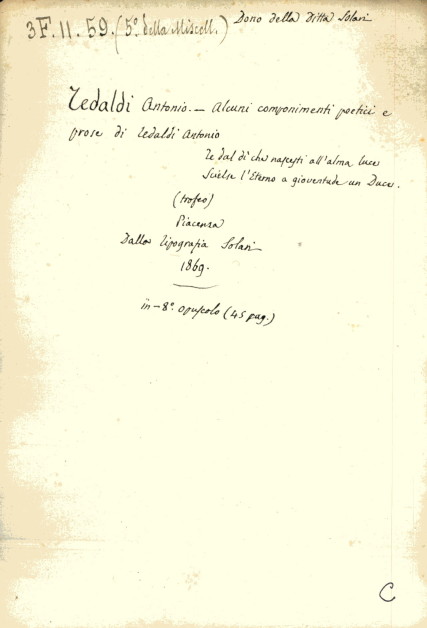 3F.II.59. (5º della Miscell.) Dono della Ditta Solari
Tedaldi Antonio. — Alcuni componimenti poetici e
prose di Tedaldi Antonio
Te dal dì che nascesti all'alma luce
Scielse l'Eterno a gioventude un Duce.
(trofeo)
Piacenza
Dalla Tipografia Solari
1869.
in-8º. opuscolo (45 pag.)
C